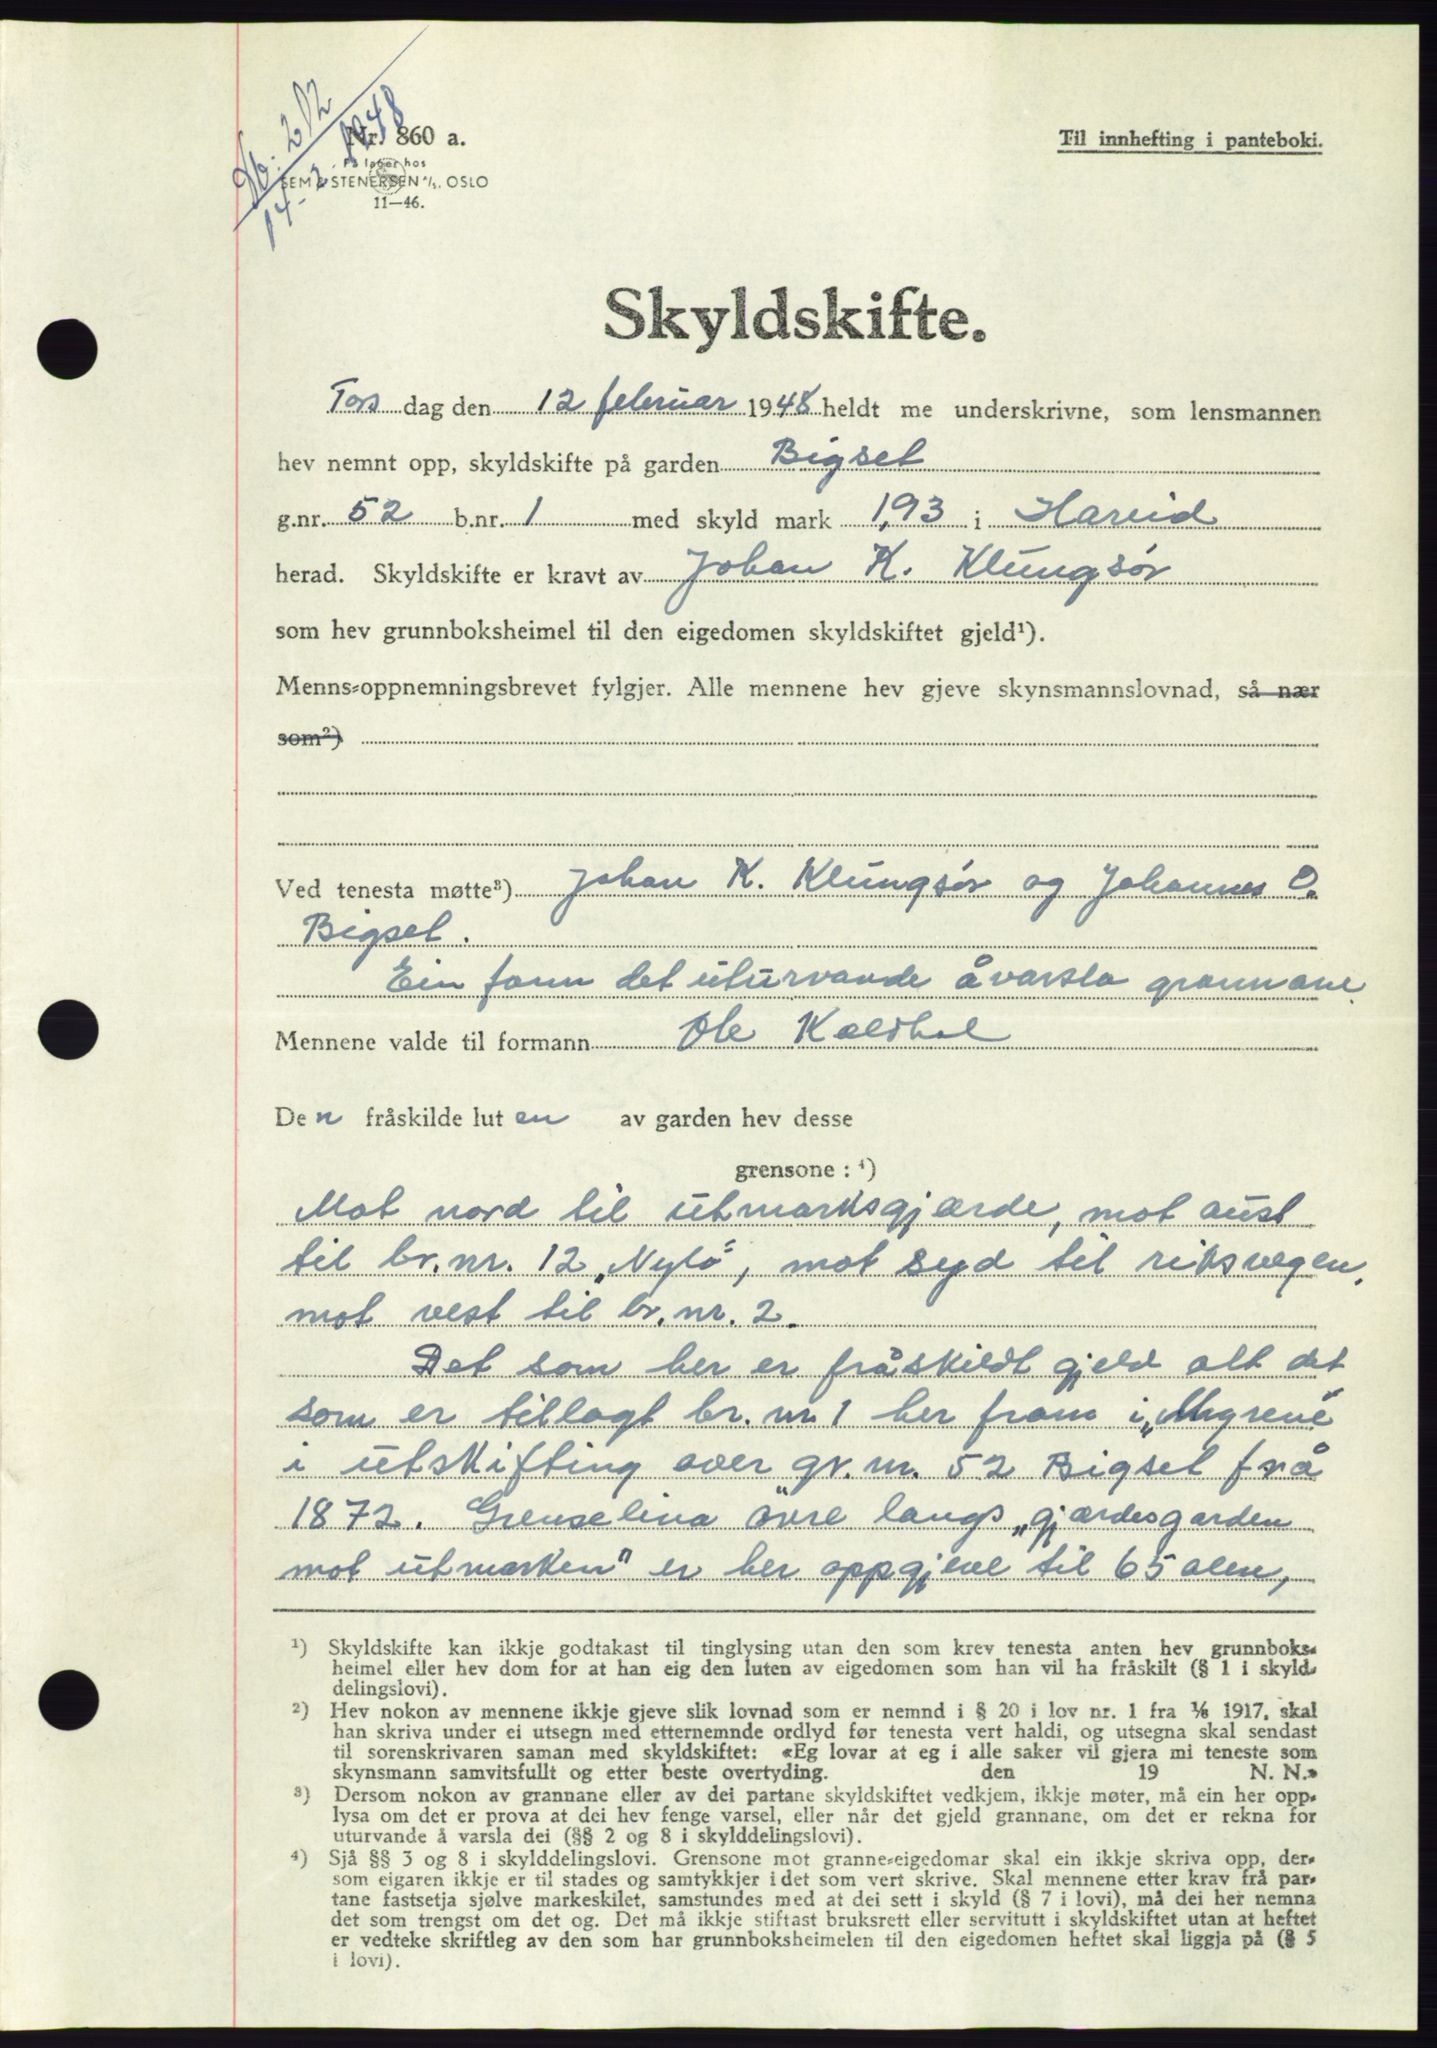 Nr. 860 a.
På lager hos
SEM & STENERSEN A/S, OSLO
11—46.
14-2 1948
Til innhefting i panteboki.
Skyldskifte.
Tors dag den 12 februar 1948 heldt me underskrivne, som lensmannen
hev nemnt opp, skyldskifte på garden Bigset
g.nr. 52 b.nr. 1 med skyld mark 1,93 i Hareid
herad. Skyldskifte er kravt av Johan K. Klungsør
som hev grunnboksheimel til den eigedomen skyldskiftet gjeld¹).
Menns-oppnemningsbrevet fylgjer. Alle mennene hev gjeve skynsmannslovnad, så nær
som²)
Ved tenesta møtte³) Johan K. Klungsør og Johannes O.
Bigset.
Ein fann det uturvande å varsla grannane.
Mennene valde til formann Ole Kaldhol
Den fråskilde luten av garden hev desse
grensone: ⁴)
Mot nord til utmarksgjærde, mot aust
til br. nr. 12 „Nylo", mot syd til riksvegen,
mot vest til br. nr. 2.
Det som her er fråskildt gjeld alt det
som er tillagt br. nr. 1 her fram i
i utskifting over gr. nr. 52 Bigset frå
1872. Grenselina øvre langs „gjærdesgarden
mot utmarken" er her oppgjeve til 65 alen,
¹) Skyldskifte kan ikkje godtakast til tinglysing utan den som krev tenesta anten hev grunnboks-
heimel eller hev dom for at han eig den luten av eigedomen som han vil ha fråskilt (§ 1 i skyld-
delingslovi).
²) Hev nokon av mennene ikkje gjeve slik lovnad som er nemnd i § 20 i lov nr. 1 fra 1/6 1917, skal
han skriva under ei utsegn med etternemnde ordlyd før tenesta vert haldi, og utsegna skal sendast
til sorenskrivaren saman med skyldskiftet: «Eg lovar at eg i alle saker vil gjera mi teneste som
skynsmann samvitsfullt og etter beste overtyding. den 19 N. N.»
³) Dersom nokon av grannane eller av dei partane skyldskiftet vedkjem, ikkje møter, må ein her opp-
lysa om det er prova at dei hev fenge varsel, eller når det gjeld grannane, om det er rekna for
uturvande å varsla dei (§§ 2 og 8 i skylddelingslovi).
⁴) Sjå §§ 3 og 8 i skylddelingslovi. Grensone mot granne-eigedomar skal ein ikkje skriva opp, der-
som eigaren ikkje er til stades og samtykkjer i det som vert skrive. Skal mennene etter krav frå par-
tane fastsetja sjølve markeskilet, samstundes med at dei sett i skyld (§ 7 i lovi), må dei her nemna
det som trengst om det og. Det må ikkje stiftast bruksrett eller servitutt i skyldskiftet utan at heftet
er vedteke skriftleg av den som har grunnboksheimelen til den eigedomen heftet skal liggja på (§ 5
i lovi).